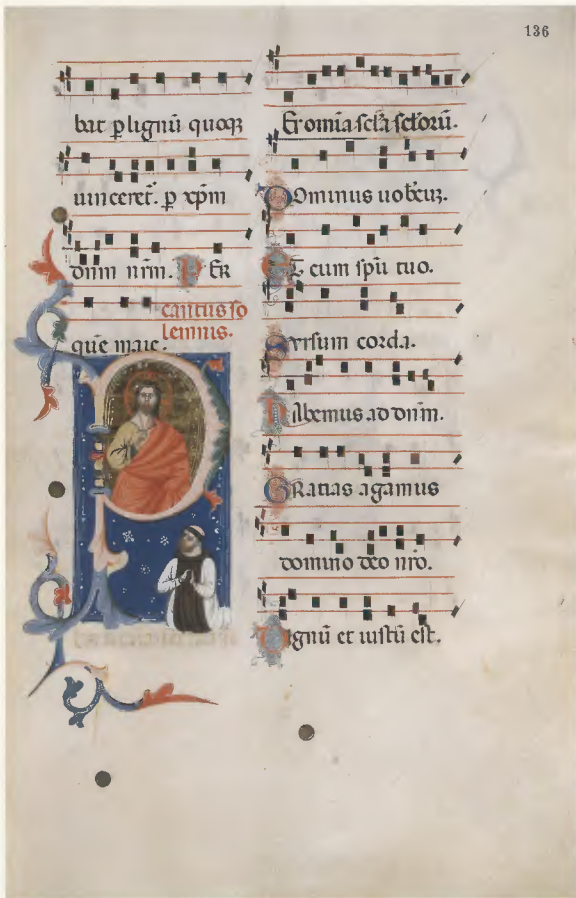 136
bat p lignū quoqȝ
uinceret. p xp̄m
dnm nr̄m. PER
cantus so
lemnis.
que maue.
P
Et om̄ia sc̄la sc̄lorū.
Dominus uobcuȝ.
Et cum spū tuo.
Sursum corda.
Habemus ad dnm̄.
Gratias agamus
domino deo nr̄o.
Dignū et iustū est.